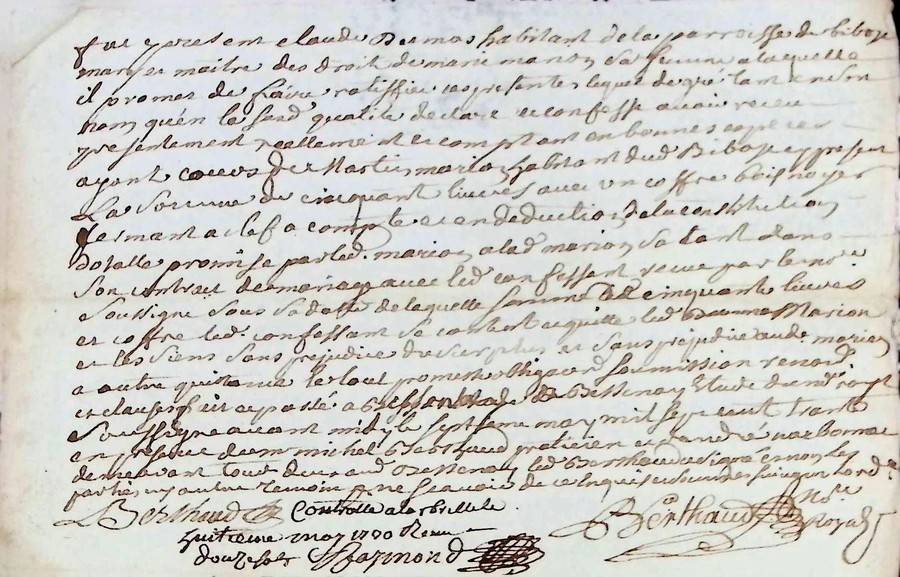 fut present claude Dermas habitant de la parroisse de bibost
mary et maitre des droit de marie marion sa femme a laquelle
il promet de faire ratiffier ces presentes lequel de gré tant en son
nom quen la sard qualite declare et confesse avoir receu
presentement reallement et comptant en bonnes especes
ayant cours de Martin marion habitant dud Bibost cy present
La Somme de cinquant livres avec un coffre bois noyer
fermant a clef a compte et en deduction de la constitution
dotalle promise par led. marion a lad marion sa dans
Son contrat de mariage avec led confessant receu par le no.re
Soussigne sous sa datte de laquelle somme de cinquante livres
et coffre led confessant se contente quitte led Marion
et les siens sans prejudice du surplus et sans prejudice aud. marion
a autre quittance le tout promesse obliga.on soumission renon.on
et clauses fait et passé a Bessenay Etude du no.re royal
Soussigne avant midy le septieme may mil sept cent trante
en presence de michel Berthaud praticien et d'andré narbonne
demeurant tout deux aud Bessenay led Berthaud a signé et non les
parties ny autre temoin p. ne scavoir de ce enquis et sommes suivant lord.ce
Berthaud Controlle a larbresle Berthaud No.re
huitieme may 1730 Receu Royal
douze sols Raymond